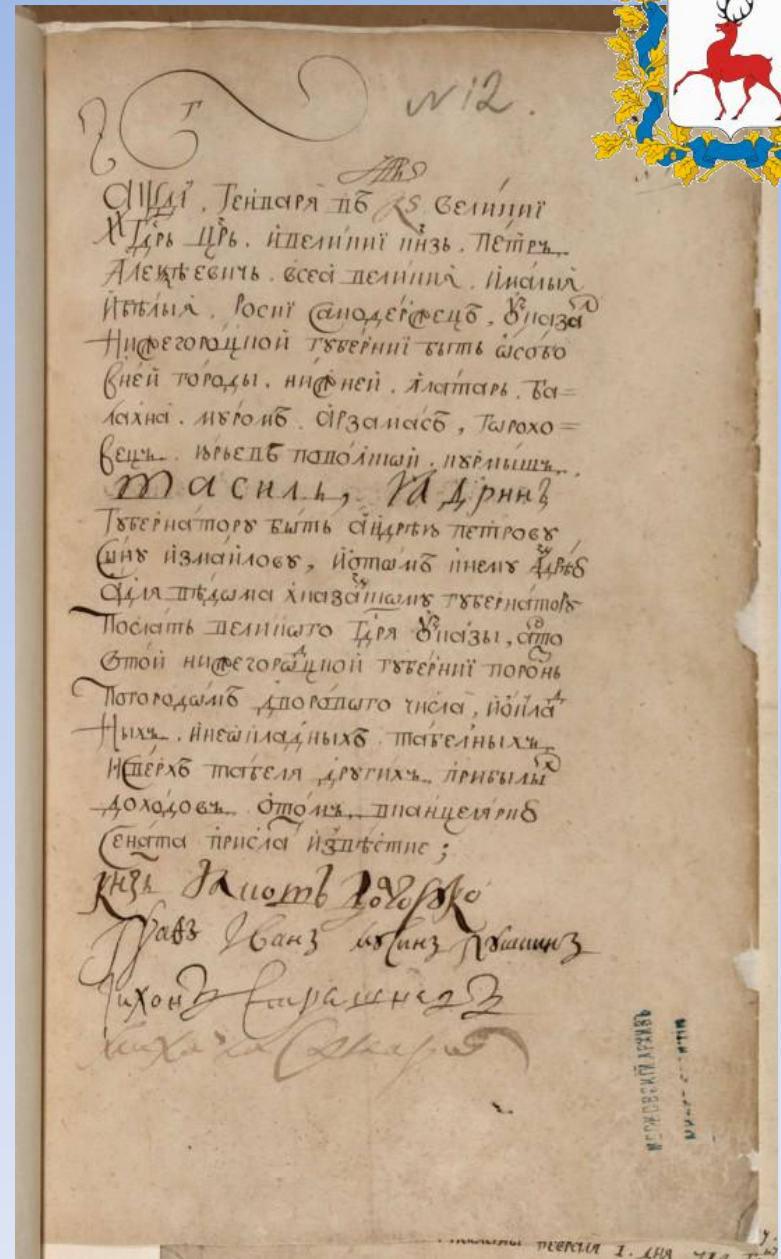 № 12.
҂аѱдı, Генваря въ кѕ великиї
Гдрь црь, и великиї кнзь, Петръ
Алеѯѣевичь, всеа великия, и малыя
и бѣлыя, Росиї самодержецъ, указал
Нижегороцкой губерниї быть ѡсобо
в ней городы, нижней, алатарь, ба=
лахна, муромъ, арзамасъ, горохо=
вецъ, юрьевъ поволской, курмышъ,
василь, Ядринъ
Губернатору быть андрѣю петрову
сыну измайлову, и ѡ томъ к нему
а для вѣдома х казанскому губернатору
послать великого Гдря указы, а что
в той нижегороцкой губерниї порознь
по городомъ дворового числа, и ѡкла
ныхъ, и неѡкладныхъ табелныхъ
и сверхъ табеля другихъ прибылых
доходовъ о томъ в канцелярию
Сената прислат извѣстие;
Кнзь Яковъ Долгоруко
Графъ Иванъ мусинъ пушкинъ
Тихонъ Стрешневъ
Михайла
МОСКОВСКІЙ АРХИВЪ